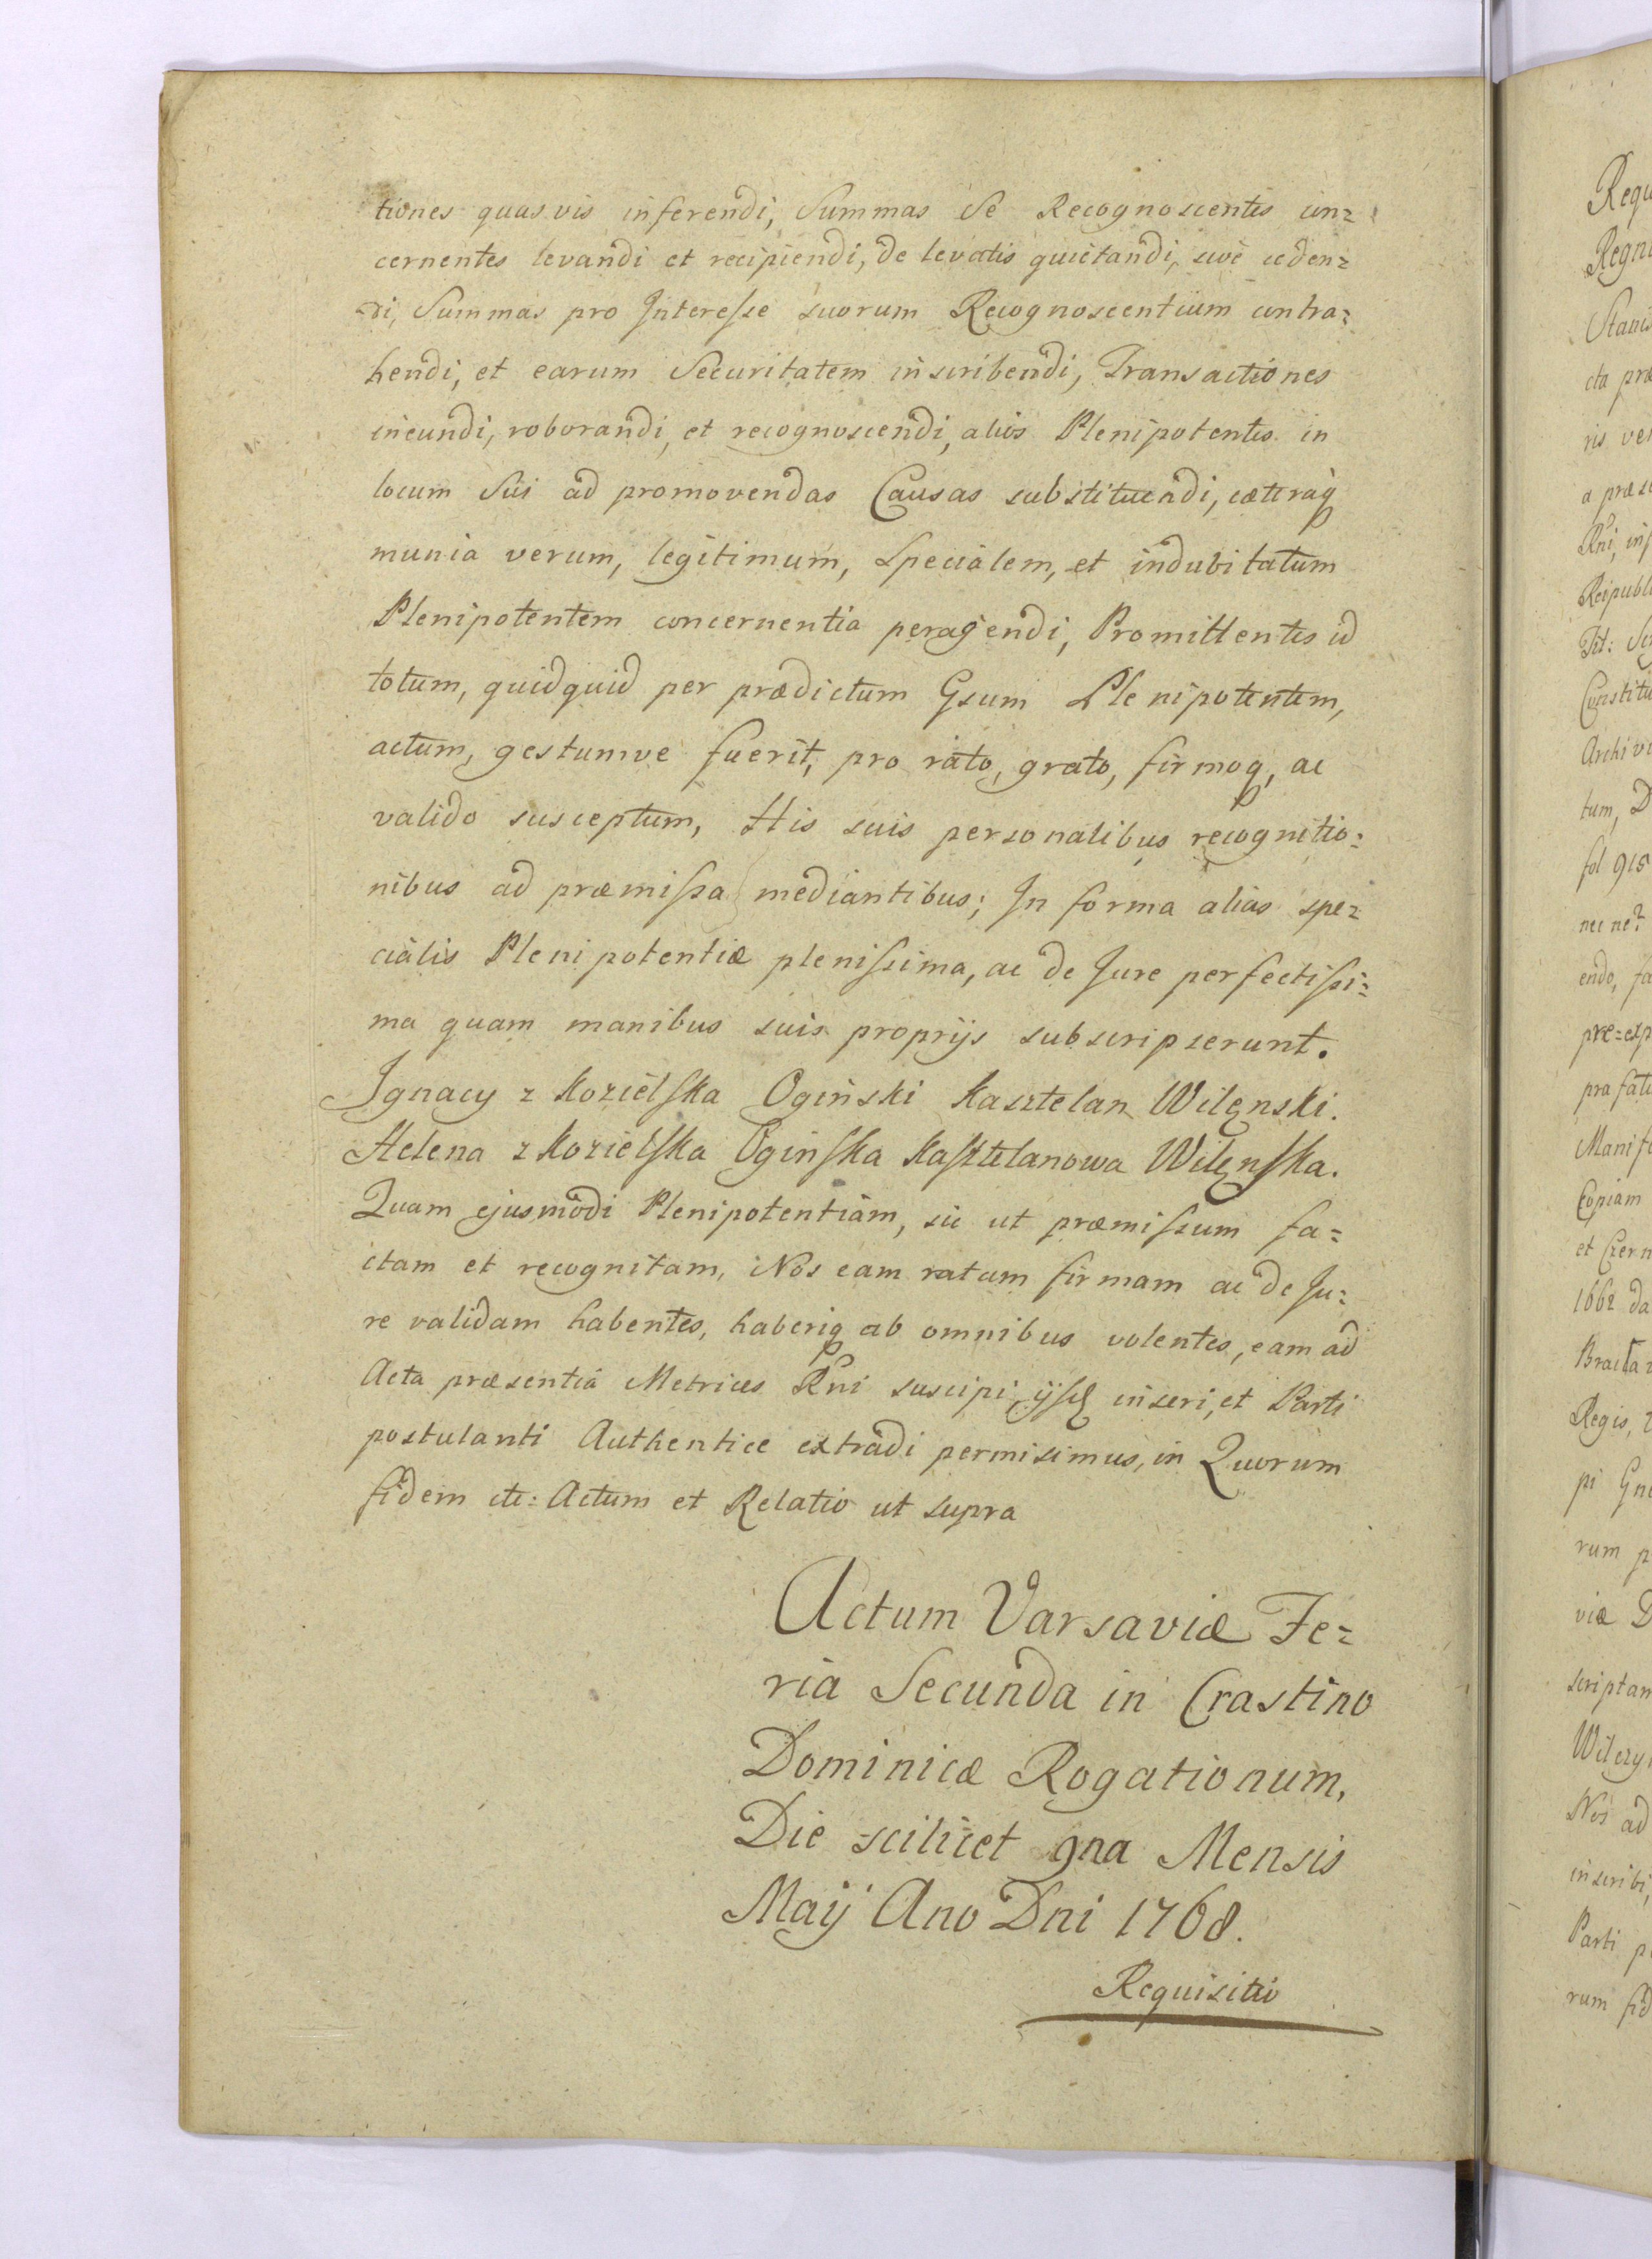 tiones quasvis inferendi, Summas Se Recognoscentes con=
cernentes levandi et recipiendi, de levatis quietandi, sive ceden=
di, Summas pro Interesse suorum Recognoscentium contra=
hendi, et earum Securitatem inscribendi, Transactiones
ineundi, roborandi, et recognoscendi, alios Plenipotentes in
locum Sui ad promovendas Causas substituendi, cætteraq
munia verum, legitimum, Specialem, et indubitatum
Plenipotentem concernentia peragendi, Promittentes id
totum, quidquid per prædictum Gsum Plenipotentem,
actum, gestumve fuerit, pro rato, grato, firmoq, ac
valido susceptum, His suis personalibus recognitio=
nibus ad præmissa mediantibus; In forma alias spe=
cialis Plenipotentiæ plenissima, ac de Jure perfectissi=
ma quam manibus suis proprijs subscripserunt.
Ignacy z Kozielska Oginski Kasztelan Wilenski.
Helena z Kozielska Oginska Kasztelanowa Wilenska.
Quam ejusmodi Plenipotentiam, sic ut præmissum fa=
ctam et recognitam, Nos eam ratam firmam ac de Ju=
re validam habentes, haberiq ab omnibus volentes, eam ad
Acta præsentia Metrices Rni suscipi, ijsq inseri, et Parti
postulanti Authentice extradi permisimus, in Quorum
fidem etc: Actum et Relatio ut supra
Actum Varsaviæ Fe=
ria Secunda in Crastino
Dominicæ Rogationum,
Die scilicet 9na Mensis
Maij Ano Dni 1768.
Requisitio